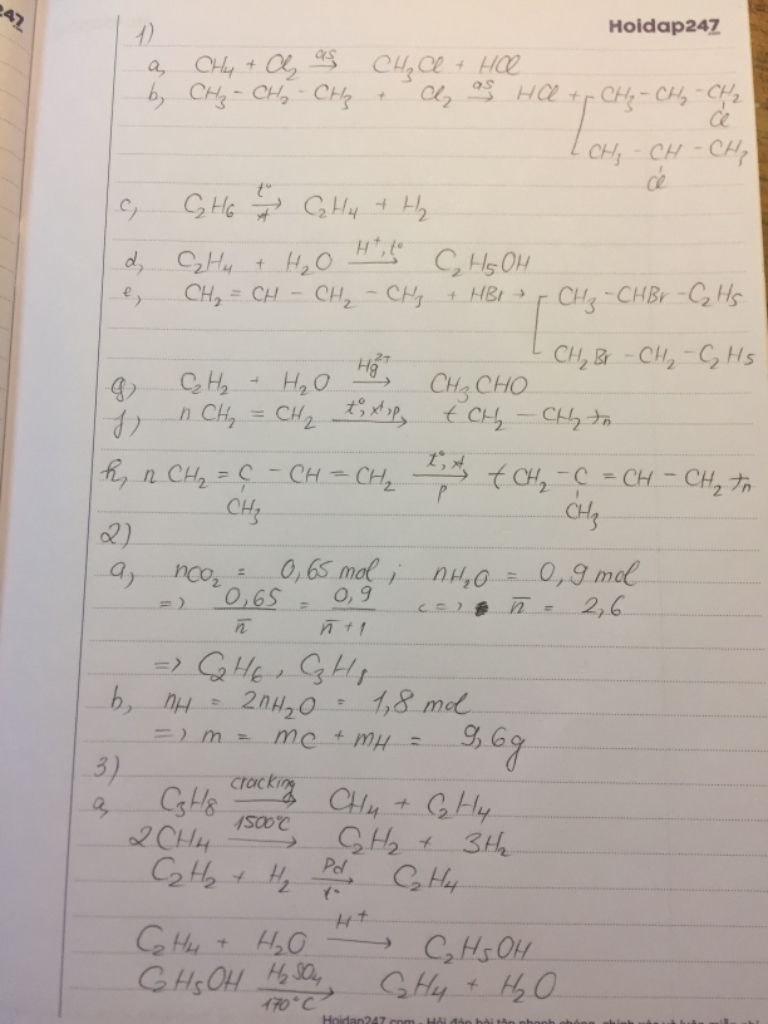 247
Hoidap247
1)
a, CH4 + Cl2 as→ CH3Cl + HCl
b, CH3 - CH2 - CH3 + Cl2 as→ HCl + CH3 - CH2 - CH2
Cl
CH3 - CH - CH3
Cl
c, C2H6 t°→xt C2H4 + H2
d, C2H4 + H2O H+, t°→ C2H5OH
e, CH2 = CH - CH2 - CH3 + HBr → CH3 - CHBr - C2H5
CH2Br - CH2 - C2H5
g) C2H2 + H2O Hg2+→ CH3CHO
f) nCH2 = CH2 t°, xt, p→ (CH2 - CH2)n
h, nCH2 = C - CH = CH2 t°, xt→p (CH2 - C = CH - CH2)n
CH3 CH3
2)
a, nCO2 = 0,65 mol ; nH2O = 0,9 mol
=> 0,65/n̄ = 0,9/n̄+1 <=> n̄ = 2,6
=> C2H6, C3H8
b, nH = 2nH2O = 1,8 mol
=> m = mC + mH = 9,6g
3)
a, C3H8 cracking→ CH4 + C2H4
2CH4 1500°C→ C2H2 + 3H2
C2H2 + H2 Pd→t° C2H4
C2H4 + H2O H+→ C2H5OH
C2H5OH H2SO4→170°C C2H4 + H2O
Hoidap247.com - Hỏi đáp bài tập nhanh chóng, chính xác và luôn miễn phí